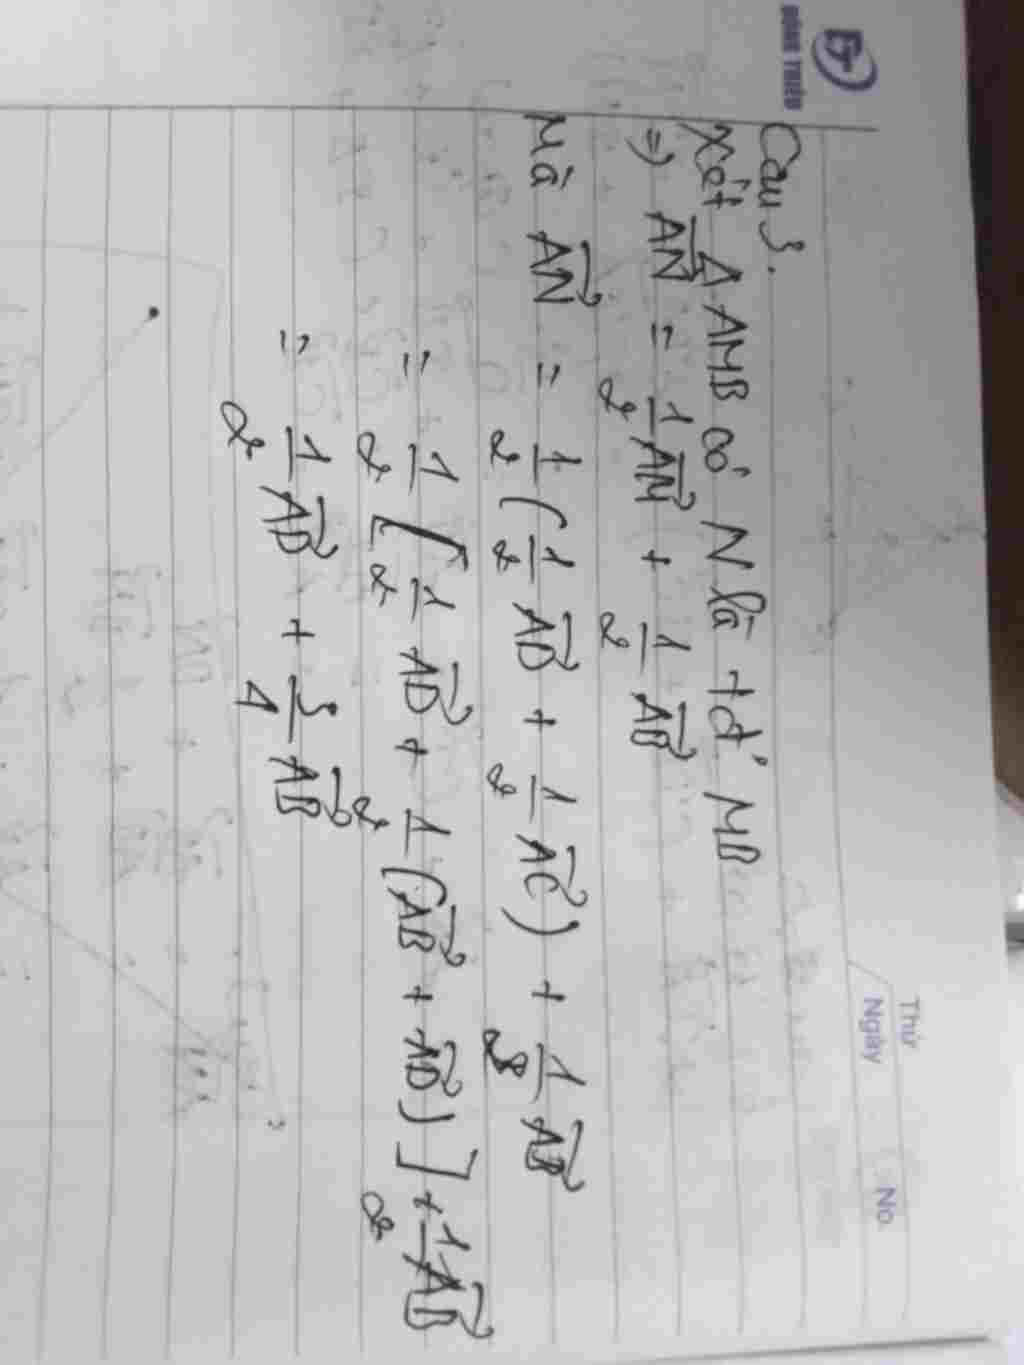 ĐÔNG TRIỀU
Thứ
Ngày
No
Câu 3.
Xét Δ AMB có N là tđ' MB
=> \vec{AN} = \frac{1}{2} \vec{AM} + \frac{1}{2} \vec{AB}
Mà \vec{AN} = \frac{1}{2} ( \frac{1}{2} \vec{AD} + \frac{1}{2} \vec{AC} ) + \frac{1}{2} \vec{AB}
= \frac{1}{2} [ \frac{1}{2} \vec{AD} + \frac{1}{2} ( \vec{AB} + \vec{AD} ) ] + \frac{1}{2} \vec{AB}
= \frac{1}{2} \vec{AD} + \frac{3}{4} \vec{AB}